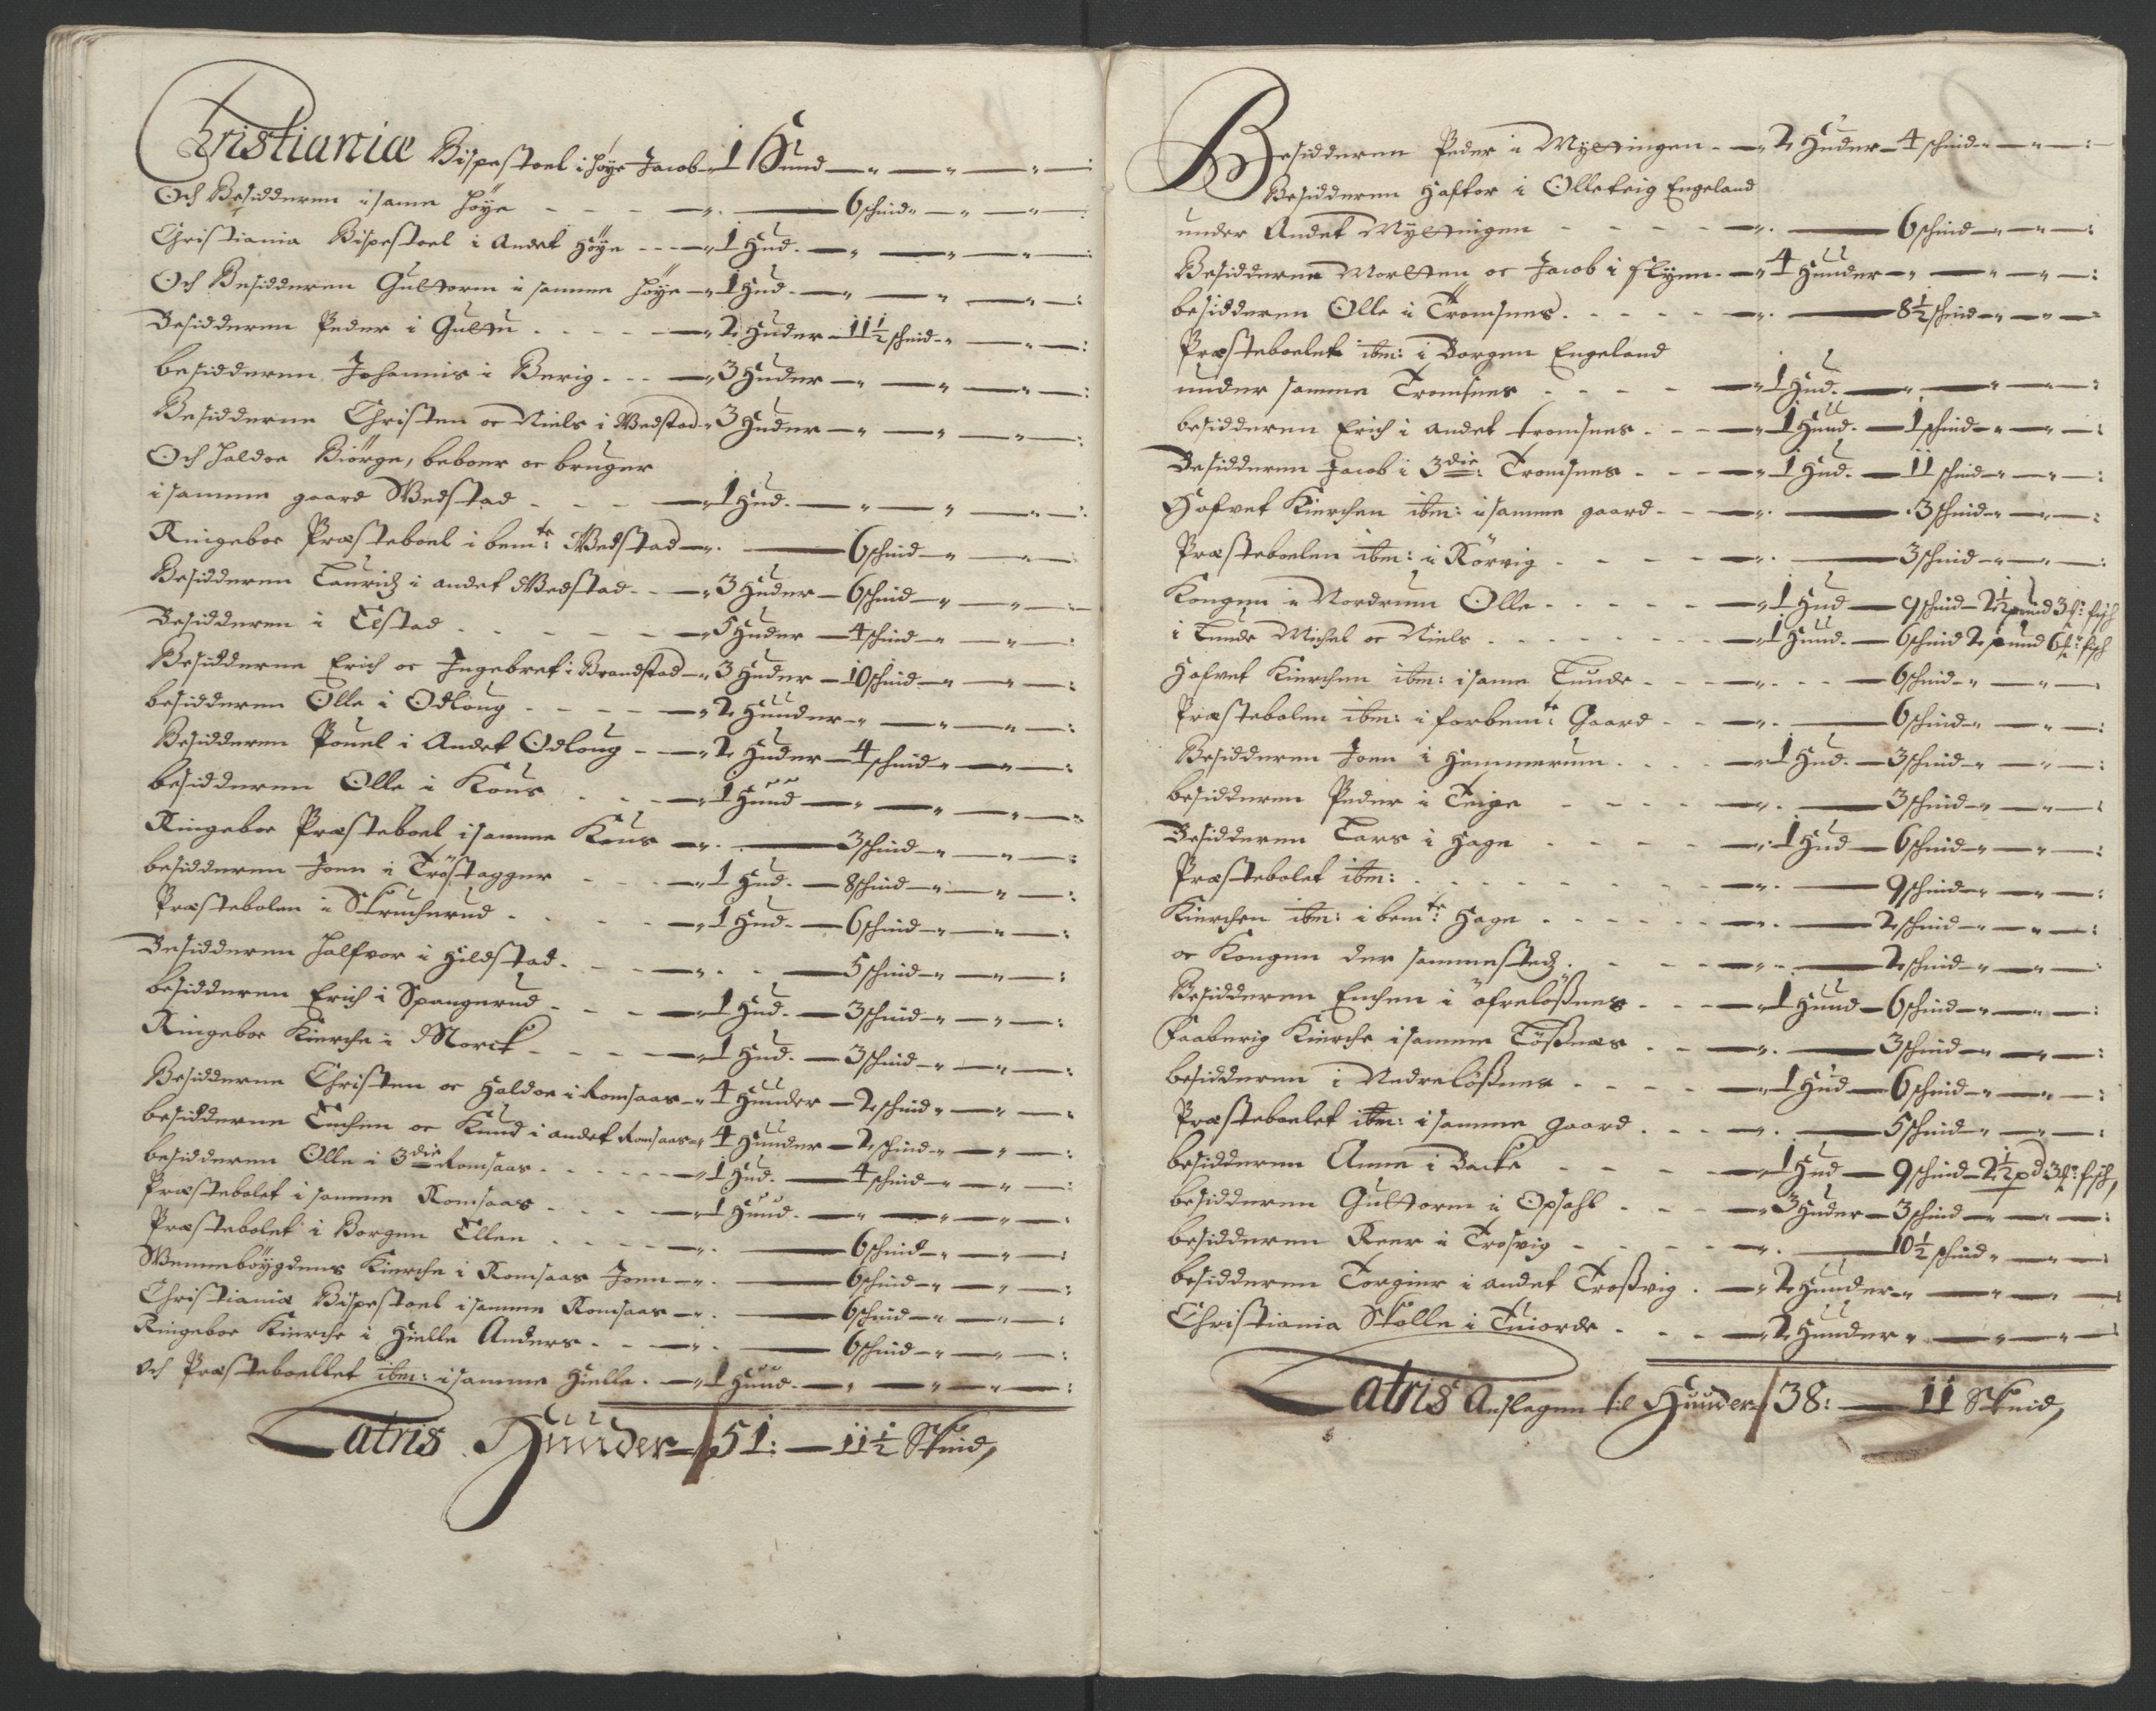 Christianiæ Bispestoel i Höye Jacob - 1 Hund
Och Besidderen i same Höye - 6 schind
Christiania Bispestoel i Andet Höye - 1 Hud
Och Besidderen Guttorm i samme Höye - 1 Hud
Besidderen Peder i Gulltu - 2 Huder - 11½ schind
besidderen Johannis i Berig - 3 Huder
Besidderne Christen oc Niels i Wedstad - 3 Huder
Och Haldoe Biörge, beboer oc bruger
i samme gaard Wedstad - 1 Hud
Ringeboe Præsteboel i bemte: Wedstad - 6 schind
Besidderen Lauridz i andet Wedstad - 3 Huder - 6 schind
Besidderen i Elstad - 5 Huder - 4 schind
Besidderne Erich oc Ingebret i Brandstad - 3 Huder - 10 schind
besidderen Olle i Odloug - 2 Huuder
Besidderen Pouel i Andet Odloug - 2 Huder - 4 schind
besidderen Olle i Kous - 1 Huud
Ringeboe Præsteboel i samme Kous - 3 schind
besidderen Joen i Tröstagger - 1 Hud - 8 schind
Præstebolen i Skruchrud - 1 Hud - 6 schind
Besidderen Halfvor i Hildstad - 5 schind
besidderen Erich i Spangerud - 1 Hud - 3 schind
Ringeboe Kierche i Morck - 1 Hud - 3 schind
Besidderne Christen oc Haldoe i Romsaas - 4 Huuder - 2 schind
besidderne Emchen oc Knud i andet Romsaas - 4 Huuder - 2 schind
besidderen Olle i 3die Romsaas - 1 Hud - 4 schind
Præstebolet i samme Romsaas - 1 Huud
Præstebolet i Borgen Ellen - 6 schind
Wenneböygdens Kierche i Romsaas Joen - 6 schind
Christianiæ Bispestoel i samme Romsaas - 6 schind
Ringeboe Kierche i Hielle Anders - 6 schind
Och Præsteboellet ibm: i samme Hielle - 1 Huud
Latris Huuder - 51: - 11½ Skind,
Besidderen Peder i Myttingen - 2 Huder - 4 schind
Besidderen Haftor i Olleteig Engeland
under Andet Myttingen - 6 schind
Besidderne Mortten oc Jacob i flyen - 4 Huuder
besidderen Olle i Tromsnes - 8½ schind
Præsteboelet ibm: i Borgen Engeland
under samme Tromsnes - 1 Hud
besidderen Erich i andet tromsnes - 1 Huud - 1 schind
Besidderen Jacob i 3die: Tromsnes - 1 Hud - 11 schind
Hafvet Kierchen ibm: i samme gaard - 3 schind
Præsteboelen ibm: i Rörvig - 3 schind
Kongen i Nordrum Olle - 1 Hud - 9 schind - 2½ pund 3 fr: fisch
i Lunde Michel oc Niels - 1 Huud - 6 schind 2 pund 6 fr: fisch
Hafvet Kierchen ibm: i same Lunde - 6 schind
Præstebolen ibm: i forbemte: Gaard - 6 schind
Besidderen Joen i Hemmerum - 1 Hud - 3 schind
besidderen Peder i Teige - 3 schind
Besidderen Lars i Hage - 1 Hud - 6 schind
Præstebolet ibm: - 9 schind
Kierchen ibm: i bemte: Hage - 2 schind
oc Kongen der sammestedz - 2 schind
Besidderen Emchen i öfrelößnes - 1 Huud - 6 schind
Faaberig Kierche i samme Lößnæs - 3 schind
besidderen i Nedrelößnes - 1 Hud - 6 schind
Præsteboelet ibm: i samme gaard - 5 schind
besidderen Anne i Backe - 1 Hud - 9 schind - 2½ pd: 3 fr: fisch,
besidderen Guttorm i Opsahl - 3 Huder - 3 schind
besidderen Reer i Trosvig - 10½ schind
besidderen Torgier i andet Troßvig - 2 Huuder
Christiania Skolle i Tuiorde - 2 Huuder
Latris Anslagen til Huuder 38: - 11 Skind,